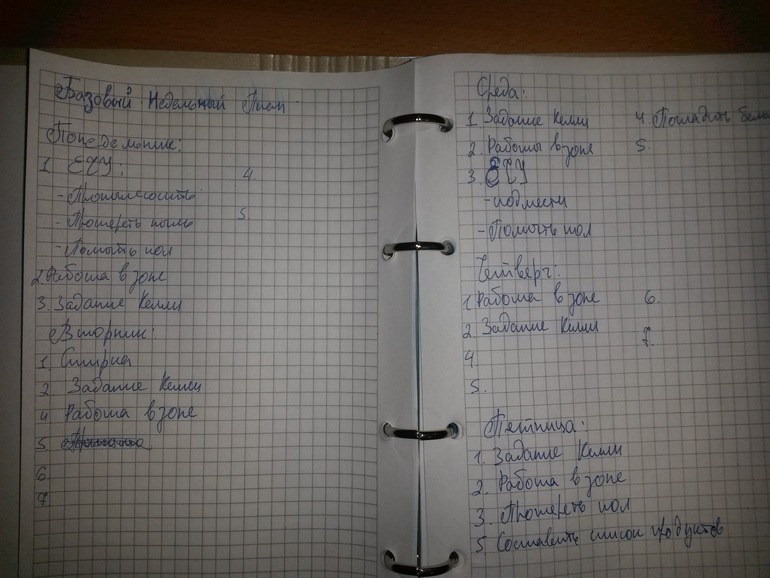 Базовый Недельный План
Понедельник:
1. ЕЧУ:
- Пропылесосить
- Протереть пыль
- Помыть пол
2. Работа в зоне
3. Задание Келли
4.
5.
Вторник:
1. Стирка
2. Задание Келли
4 Работа в зоне
5
6
7
Среда:
1. Задание Келли
2. Работы в зоне
3. ЕЧУ
- подмести
- Помыть пол
4. Погладить бель
5.
Четверг:
1 Работа в зоне
2. Задание Келли
4.
5.
6.
7.
Пятница:
1. Задание Келли
2. Работа в зоне
3. Протереть пол
5 Составить список продуктов